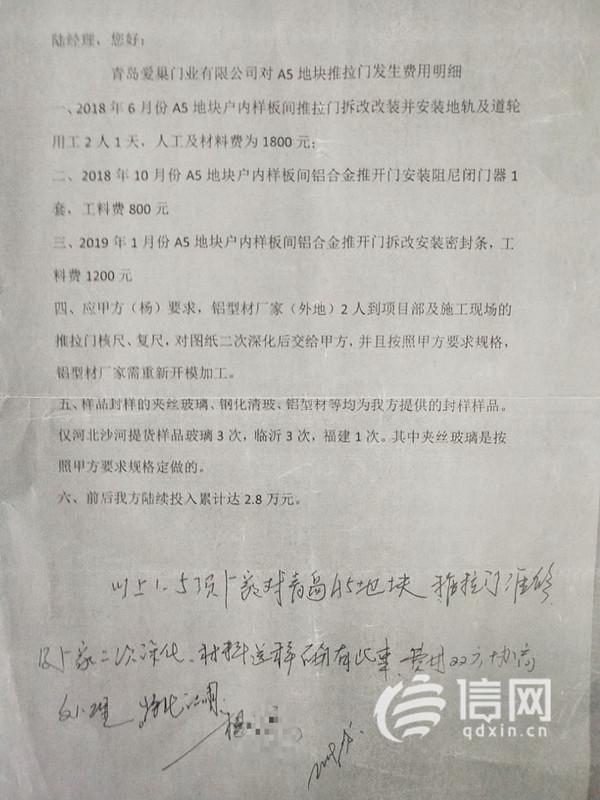 陆经理，您好：
青岛爱巢门业有限公司对 A5 地块推拉门发生费用明细
一、2018 年 6 月份 A5 地块户内样板间推拉门拆改改装并安装地轨及道轮
用工 2 人 1 天，人工及材料费为 1800 元；
二、2018 年 10 月份 A5 地块户内样板间铝合金推开门安装阻尼闭门器 1
套，工料费 800 元
三、2019 年 1 月份 A5 地块户内样板间铝合金推开门拆改安装密封条，工
料费 1200 元
四、应甲方（杨）要求，铝型材厂家（外地）2 人到项目部及施工现场的
推拉门核尺、复尺，对图纸二次深化后交给甲方，并且按照甲方要求规格，
铝型材厂家需重新开模加工。
五、样品封样的夹丝玻璃、钢化清玻、铝型材等均为我方提供的封样样品。
仅河北沙河提货样品玻璃 3 次，临沂 3 次，福建 1 次。其中夹丝玻璃是按
照甲方要求规格定做的。
六、前后我方陆续投入累计达 2.8 万元。
以上1.5项厂家对青岛A5地块 推拉门维修
及厂家二次深化、材料送样确有此事，费用双方协商
处理，特此证明。
杨
信网
qdxin.cn